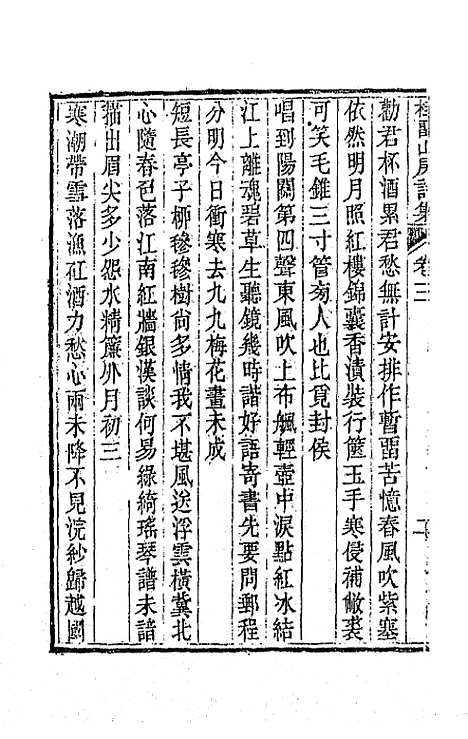 山房詩集 卷三
勸君杯酒累君愁無計安排作暫畱苦憶春風吹紫塞
依然明月照紅樓錦囊香漬裝行篋玉手寒侵補敝裘
可笑毛錐三寸管匆人也比覓封侯
唱到陽關第四聲東風吹上布颿輕壺中淚點紅冰結
江上離魂碧草生聽鏡幾時諧好語寄書先要問郵程
分明今日衝寒去九九梅花畫未成
短長亭子柳毿毿樹尚多情我不堪風送浮雲橫冀北
心隨春色落江南紅牆銀漢談何易綠綺瑤琴譜未諳
描出眉尖多少怨水精簾外月初三
寒潮帶雪落漁矼酒力愁心兩未降不見浣紗歸越國